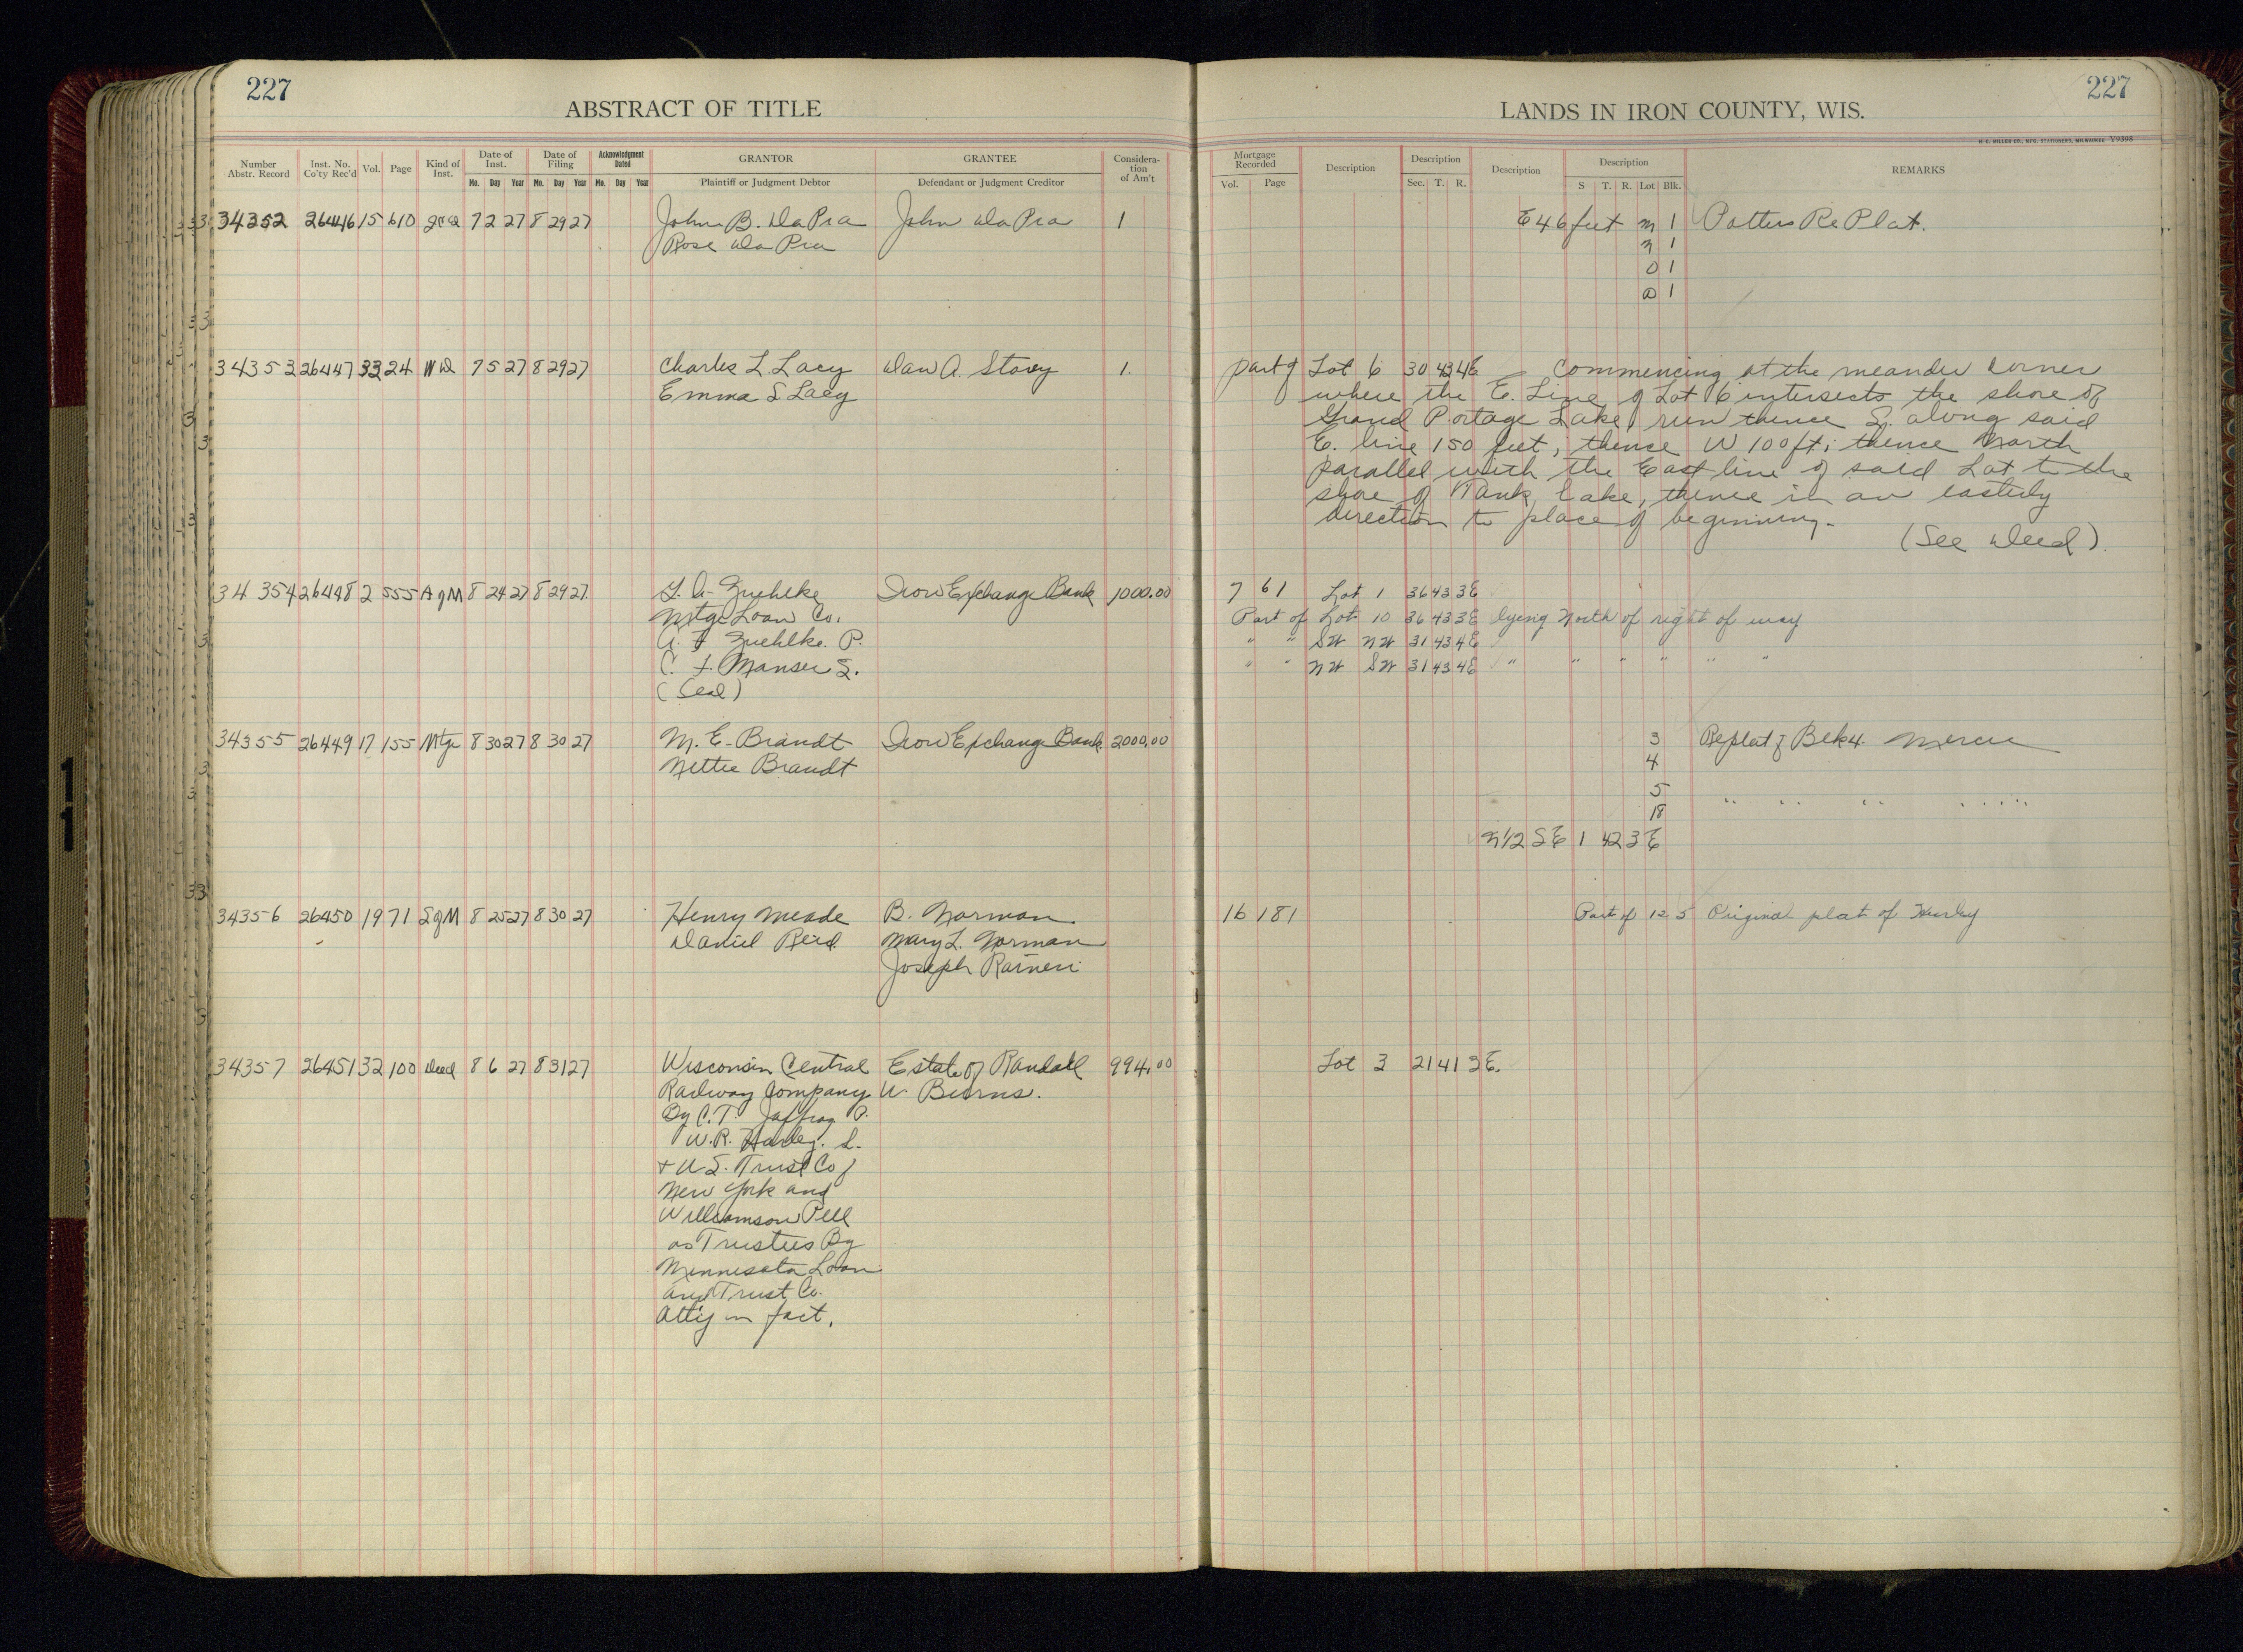 227
227
ABSTRACT OF TITLE
LANDS IN IRON COUNTY, WIS.
H. C. MILLER CO., MFG. STATIONERS, MILWAUKEE V9398
Number Abstr. Record Inst. No. Co'ty Rec'd Vol. Page Kind of Inst. Date of Inst. Date of Filing Acknowledgment Dated GRANTOR GRANTEE Considera-tion of Am't Mortgage Recorded Description Description Description Description REMARKS
Mo. Day Year Mo. Day Year Mo. Day Year Plaintiff or Judgment Debtor Defendant or Judgment Creditor Vol. Page Sec. T. R. S T. R. Lot Blk.
34352 26446 15 610 7 2 27 8 29 27 John B. DaPra John DaPra 1 E 46 feet M 1 Potters RePlat.
Rose DaPra N 1
O 1
1
34353 26447 33 24 WD 7 5 27 8 29 27 Charles L. Lacy Dan A. Stovey 1. part of Lot 6 30 43 4E Commencing at the meander corner
Emma S. Lacy where the E. Line of Lot 6 intersects the shore of
Grand Portage Lake, run thence S. along said
E. line 150 feet, thence W 100 ft; thence North
parallel with the East line of said Lot to the
shore of Tank Lake, thence in an easterly
direction to place of beginning.
(See Deed).
34354 26448 2 555 AgM 8 24 27 8 29 27 Zuehlke Iron Exchange Bank 1000.00 7 61 Lot 1 36 43 3E
Mtge Loan Co. Part of Lot 10 36 43 3E lying North of right of way
A. F Zuehlke. P. " " SW NW 31 43 4E
C. F. Manser S. " " NW SW 31 43 4E " " " " " "
(Seal)
34355 26449 17 155 Mtge 8 30 27 8 30 27 M. E. Brandt Iron Exchange Bank 2000.00 3 Replat of Blk 4. Mercer
Nettie Brandt 4
5
18 " " " " "
N1/2 SE 1 42 3E
34356 26450 19 71 SgM 8 25 27 8 30 27 Henry Meade B. Norman 16 181 Part of 12 5 Original plat of Hurley
Daniel Reid Mary L. Norman
Joseph Raineri
34357 26451 32 100 Deed 8 6 27 8 31 27 Wisconsin Central Estate of Randall 994.00 Lot 3 21 41 3E.
Railway Company W.
By C. T. Jaffray P.
W. R. Harley. S.
+ U.S. Trust Co of
New York and
Williamson Pell
as Trustees By
Minnesota Loan
and Trust Co.
Att'y in fact.